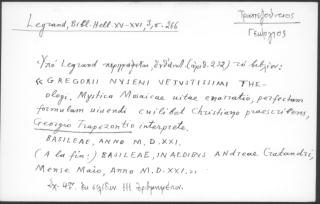 Legrand, Bibl. Hell. XV-XVI, 3, σ. 266
Τραπεζούντιος
Γεώργιος
Ὑπὸ Legrand περιγράφεται, ἐνθάδε (ἀριθ. 272) τὸ βιβλίον:
« GREGORII NYSENI VETVSTISSIMI THE-
ologi, Mystica Mosaicae vitae enarratio, perfectam
formulam vivendi cuilibet Christiano praescribens,
Georgio Trapezontio interprete.
BASILEAE, ANNO M.D.XXI.
(A la fin:) BASILEAE, IN AEDIBVS ANdreae Cratandri,
Mense Maio, ANNO M.D.XXI.»
Σχ. 4ον. ἐκ σελίδων 111 ἠριθμημένων.